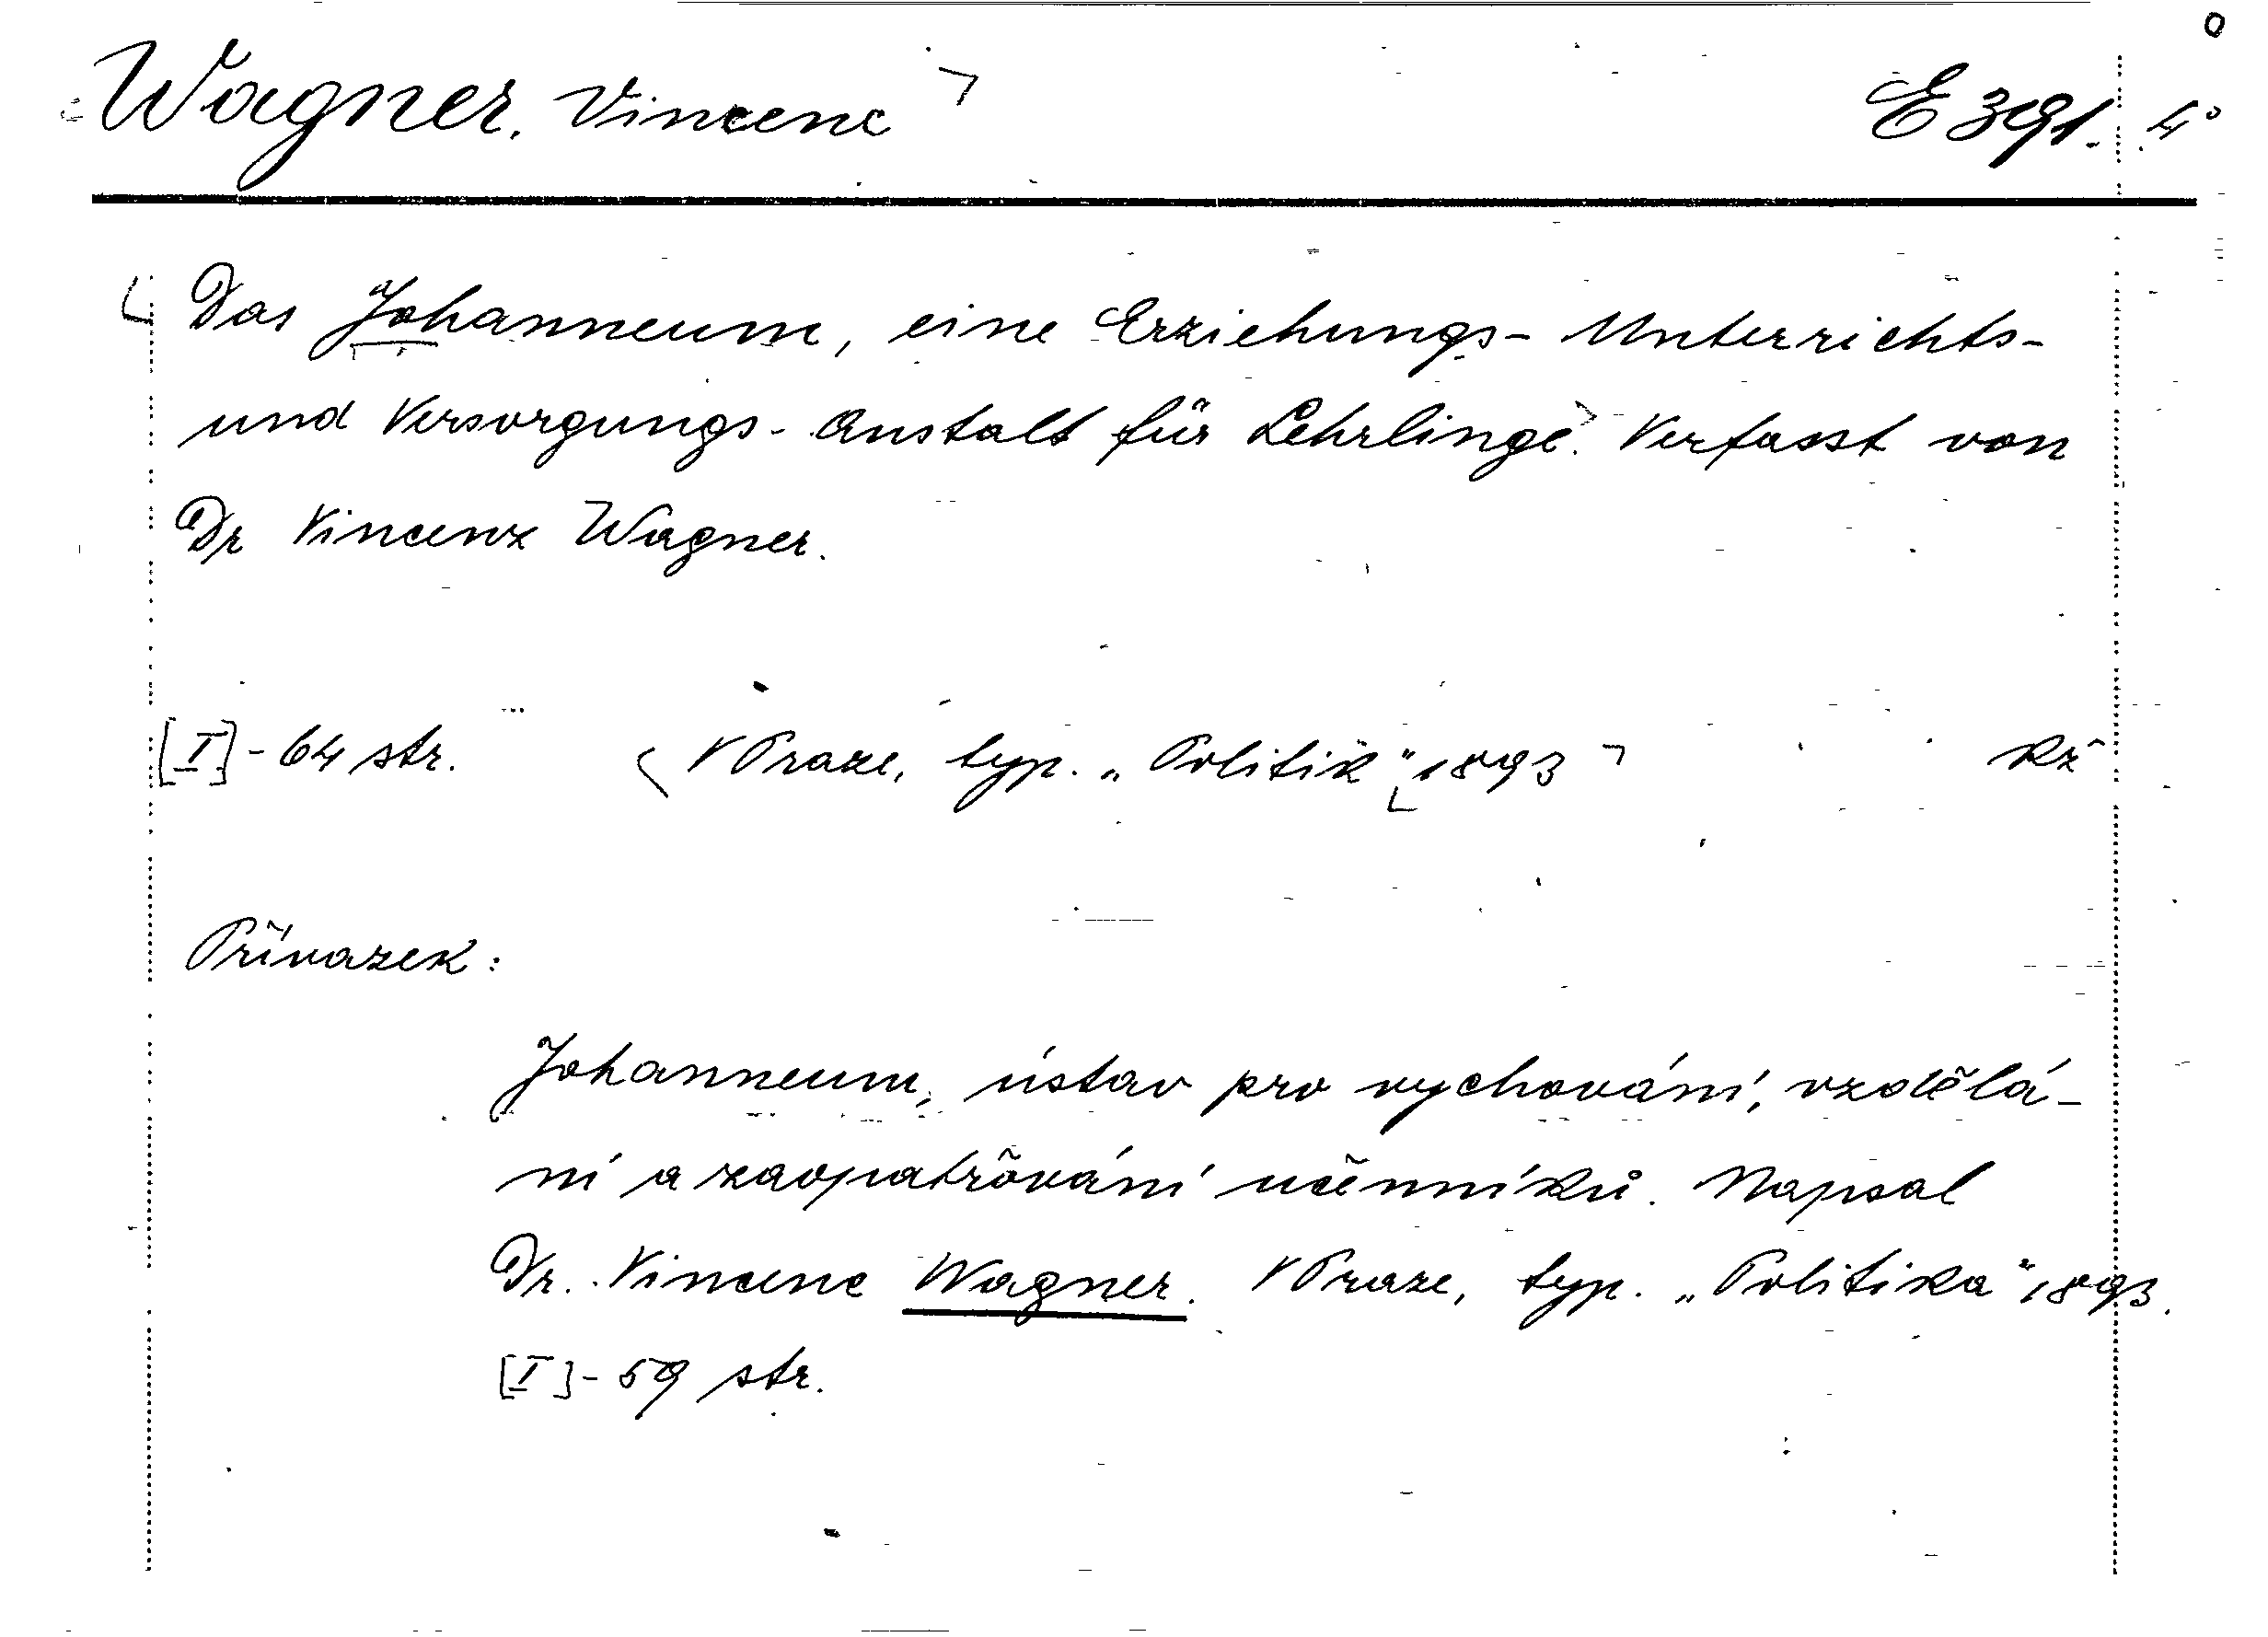 Wagner, Vincenc E 391. 4°
Das Johanneum, eine Erziehungs- Unterrichts-
und Versorgungs-Anstalt für Lehrlinge. Verfasst von
Dr Vincenz Wagner.
[I]-64 str. V Praze, typ. „Politik" 1893 Rž
Přívazek:
Johanneum, ústav pro vychování, vzdělá-
ní a zaopatřování učenníků. Napsal
Dr. Vincenc Wagner. V Praze, typ. „Politika" 1893.
[I]-59 str.